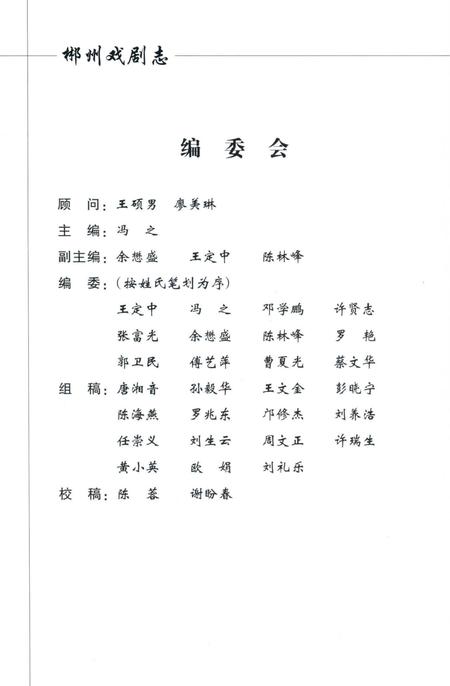 郴州戏剧志
编委会
顾 问：王硕男 廖美琳
主 编：冯 之
副主编：余懋盛 王定中 陈林峰
编 委：（按姓氏笔划为序）
王定中 冯 之 邓学鹏 许贤志
张富光 余懋盛 陈林峰 罗 艳
郭卫民 傅艺萍 曹夏光 蔡文华
组 稿：唐湘音 孙毅华 王文金 彭晓宁
陈海燕 罗兆东 邝修杰 刘养浩
任崇义 刘生云 周文正 许瑞生
黄小英 欧 娟 刘礼乐
校 稿：陈 蓉 谢盼春